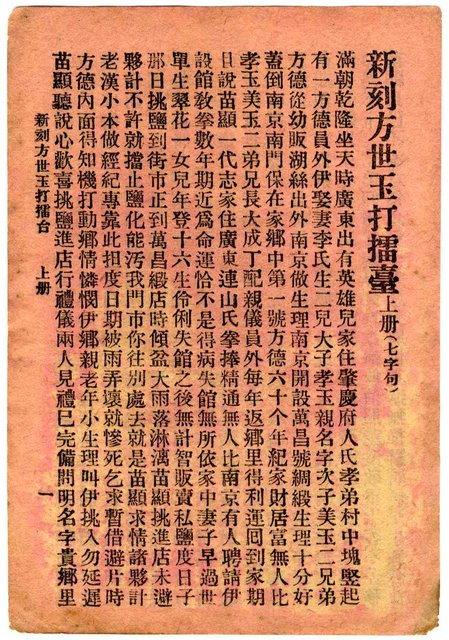 新刻方世玉打擂臺上册(七字句)
滿朝乾隆坐天時廣東出有英雄兒家住肇慶府人氏孝弟村中塊堅起
有一方德員外伊娶妻李氏生二兒大子孝玉親名字次子美玉二兄弟
方德從幼販湖絲出外南京做生理南京開設萬昌號綢緞生理十分好
蓋倒南京南門保在家鄉中第一號方德六十個年紀家財居富無人比
孝玉美玉二弟兄長大成丁配親儀員外每年返鄉里得利運囘到家期
且說苗顯一代志家住廣東連山氏拳捧精通無人比南京有人聘請伊
設館敎拳數年期近爲命運恰不是得病失館無所依家中妻子早過世
單生翠花一女兒年登十六生伶俐失館之後無計智販賣私鹽度日子
那日挑鹽到街市正到萬昌緞店時傾盆大雨落淋漓苗顯挑進店未避
夥計不許就擋止鹽化能污我門市你往別處去就是苗顯求情諸夥計
老漢小本做經紀專靠此担度日期被雨弄壞就慘死乞求暫借避片時
方德內面得知機打動鄉情憐憫伊鄉親老年小生理叫伊挑入勿延遲
苗顯聽說心歡喜挑鹽進店行禮儀兩人見禮巳完備問明名字貴鄉里
新刻方世玉打擂台 上册 一